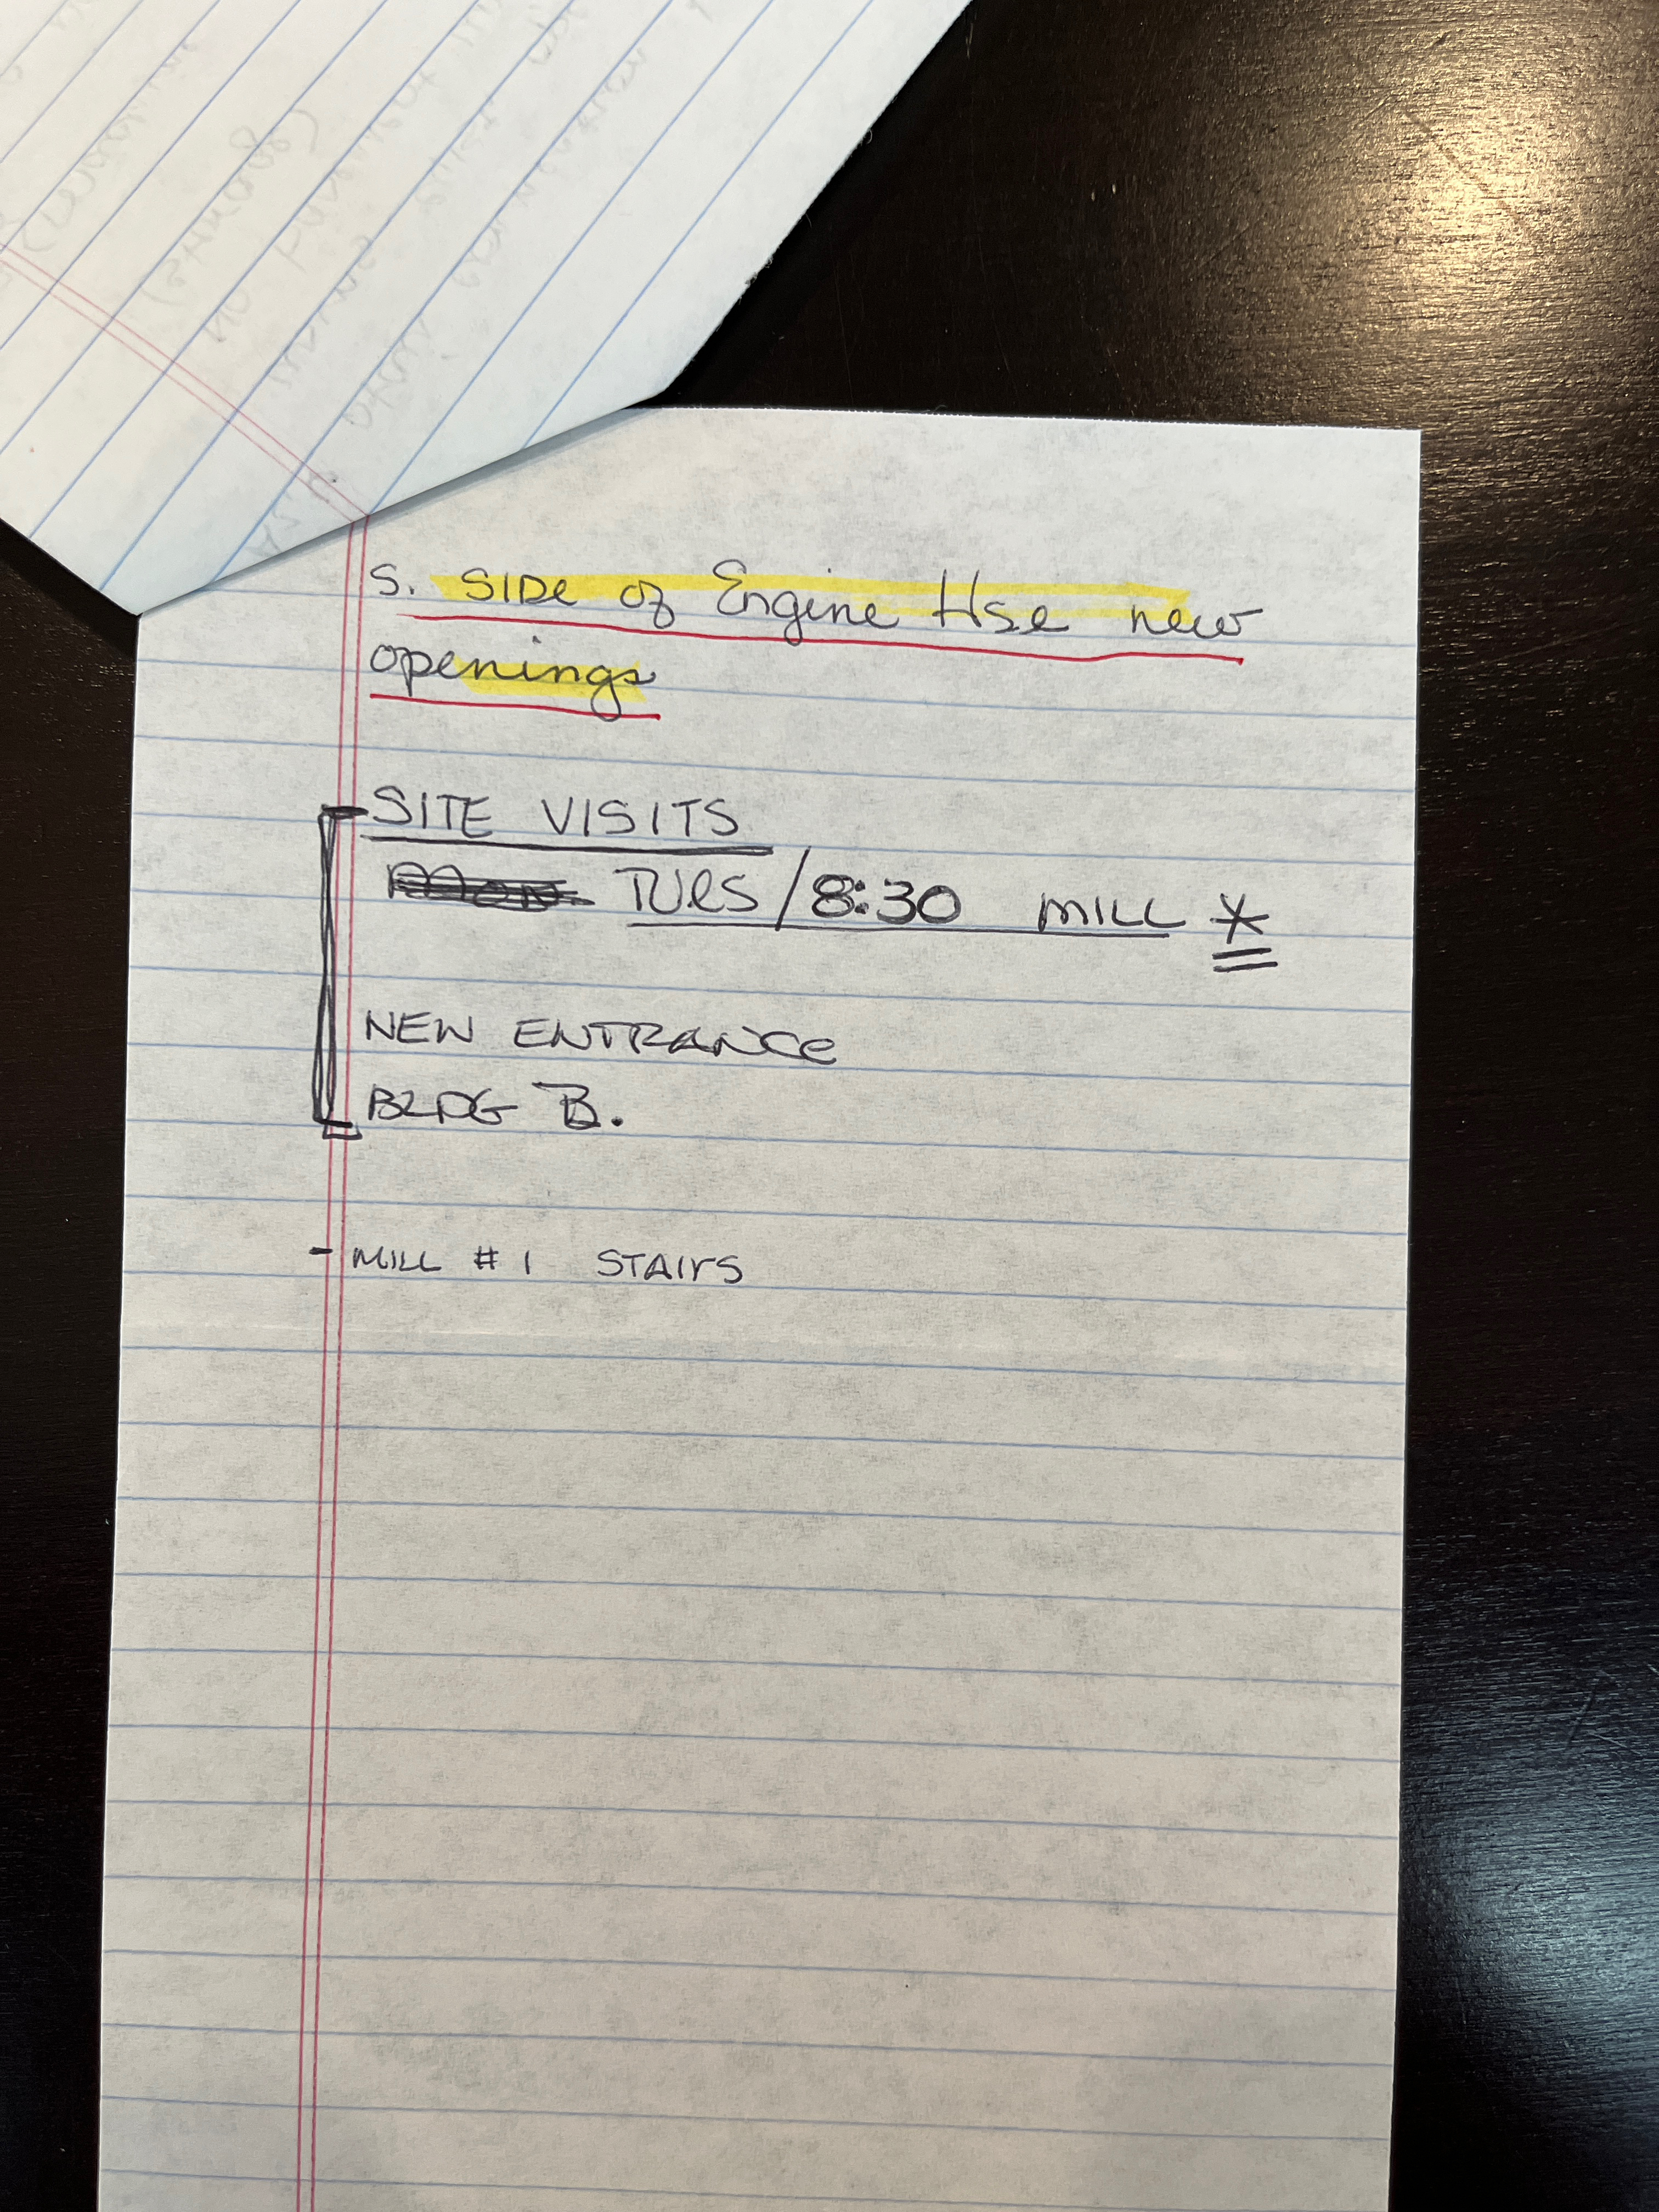 S. SIDe of Engine Hse new
openings
SITE VISITS
Mon. TUes / 8:30 MILL *
NEW ENTRANCe
BLDG B.
- MILL # 1 STAIrS